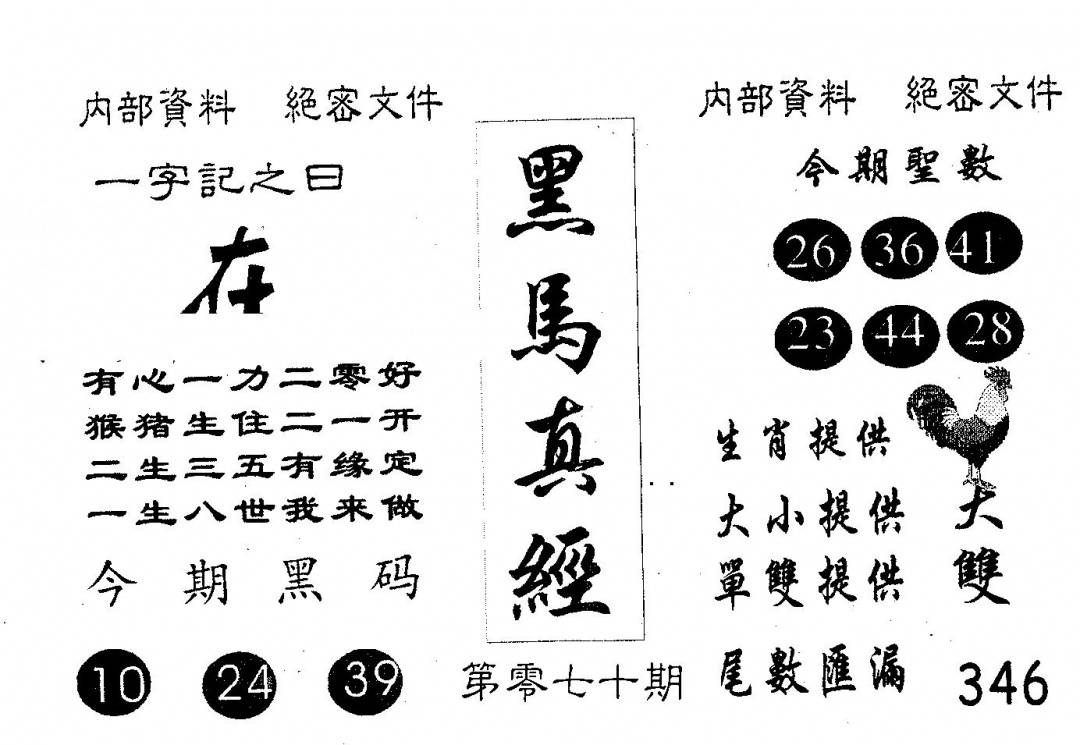 内部資料 絕密文件
一字記之曰
在
有心一力二零好
猴猪生住二一开
二生三五有缘定
一生八世我来做
今期黑码
10 24 39
黑馬真經
第零七十期
内部資料 絕密文件
今期聖數
26 36 41
23 44 28
生肖提供
大小提供 大
單雙提供 雙
尾數匯漏 346